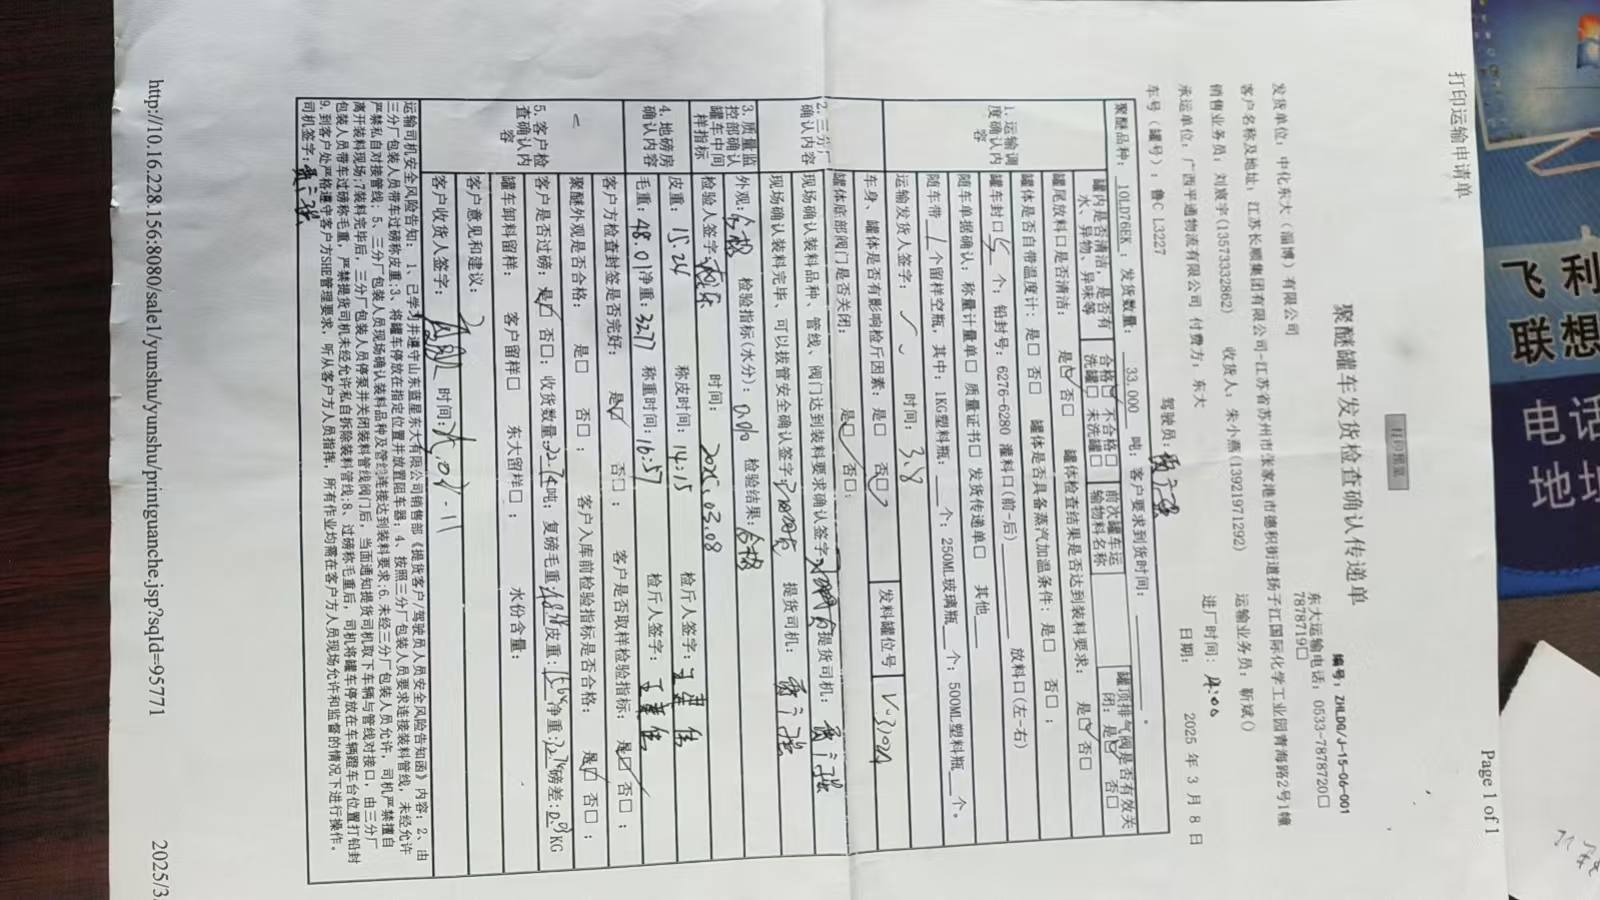 打印运输申请单
Page 1 of 1
打印预览
聚醚罐车发货检查确认传递单
编号：ZHLDG/J-15-06-001
发货单位：中化东大（淄博）有限公司
东大运输电话：0533-7878720□
7878719□
客户名称及地址：江苏长顺集团有限公司-江苏省苏州市张家港市德积街道扬子江国际化学工业园青海路2号1幢
销售业务员：刘寰宇(13573332862) 收货人：朱小燕(13921971292) 运输业务员：靳斌()
承运单位：广西平通物流有限公司 付费方：东大 进厂时间：
车号（罐号）：鲁C L3227 驾驶员： 日期： 2025 年 3 月 8 日
聚醚品种：10LD76EK，发货数量： 33.000 吨，客户要求到货时间： 。
1.运输调度确认内容
罐内是否清洁，是否有水、异物、异味等 合格☑ 不合格□ 洗罐□ 未洗罐□ 前次罐车运输物料名称 罐顶排气阀是否有效关闭：是☑ 否□
罐尾放料口是否清洁： 是☑ 否□ 罐体检查结果是否达到装料要求： 是☑ 否□
罐体是否自带温度计：是□ 否□ 罐体是否具备蒸汽加温条件：是□ 否□；
罐车封口 5 个；铅封号：6276-6280 灌料口(前-后) 放料口(左-右)
随车单据确认：称量计量单□ 质量证书□ 发货传递单□ 其他
随车带 1 个留样空瓶，其中：1KG塑料瓶： 个；250ML玻璃瓶 个；500ML塑料瓶 个。
运输发货人签字： 时间：3.8
车身、罐体是否有影响检斤因素：是□ 否☑ 发料罐位号 V-3102A
2.三分厂确认内容
罐体底部阀门是否关闭： 是☑ 否□；
现场确认装料品种、管线、阀门达到装料要求确认签字： 提货司机：
现场确认装料完毕、可以拔管安全确认签字： 提货司机：
3.质量监控部确认罐车中间样指标
外观：合格 检验指标(水分)： 检验结果：合格
检验人签字： 时间： 2025.03.08
4.地磅房确认内容
皮重： 15.24 称皮时间：14:15 检斤人签字：
毛重：48.01 净重：32.77 称重时间：16:57 检斤人签字：
5.客户检查确认内容
客户方检查封签是否完好： 是☑ 否□； 客户是否取样检验指标：是☑ 否□；
聚醚外观是否合格： 是□ 否□； 客户入库前检验指标是否合格： 是☑ 否□；
客户是否过磅：是☑ 否□；收货数量： 吨；复磅毛重： 皮重： 净重： 磅差： KG
罐车卸料留样： 客户留样□ 东大留样□； 水份含量：
客户意见和建议：
客户收货人签字： 时间：
运输司机安全风险告知：1、已学习并遵守山东蓝星东大有限公司销售部《提货客户/驾驶员人员安全风险告知函》内容；2、由
三分厂包装人员带车过磅称皮重；3、将罐车停放在指定位置并放置阻车器；4、按照三分厂包装人员要求连接装料管线，未经允许
严禁私自对接管线；5、三分厂包装人员现场确认装料品种及管线连接达到装料要求；6、未经三分厂包装人员允许，司机严禁擅自
离开装料现场；7装料完毕后，三分厂包装人员停泵并关闭装料管线阀门后，当面通知提货司机取下车辆与管线对接口，由三分厂
包装人员带车过磅称毛重，严禁提货司机未经允许私自拆除装料管线；8、过磅称毛重后，司机将罐车停放在车辆蹬车台位置打铅封
9、到客户处严格遵守客户方SHE管理要求，听从客户方人员指挥，所有作业均需在客户方人员现场允许和监督的情况下进行操作。
司机签字：
http://10.16.228.156:8080/sale1/yunshu/yunshu/printguanche.jsp?sqId=95771
2025/3
飞利
联想
电话
地址